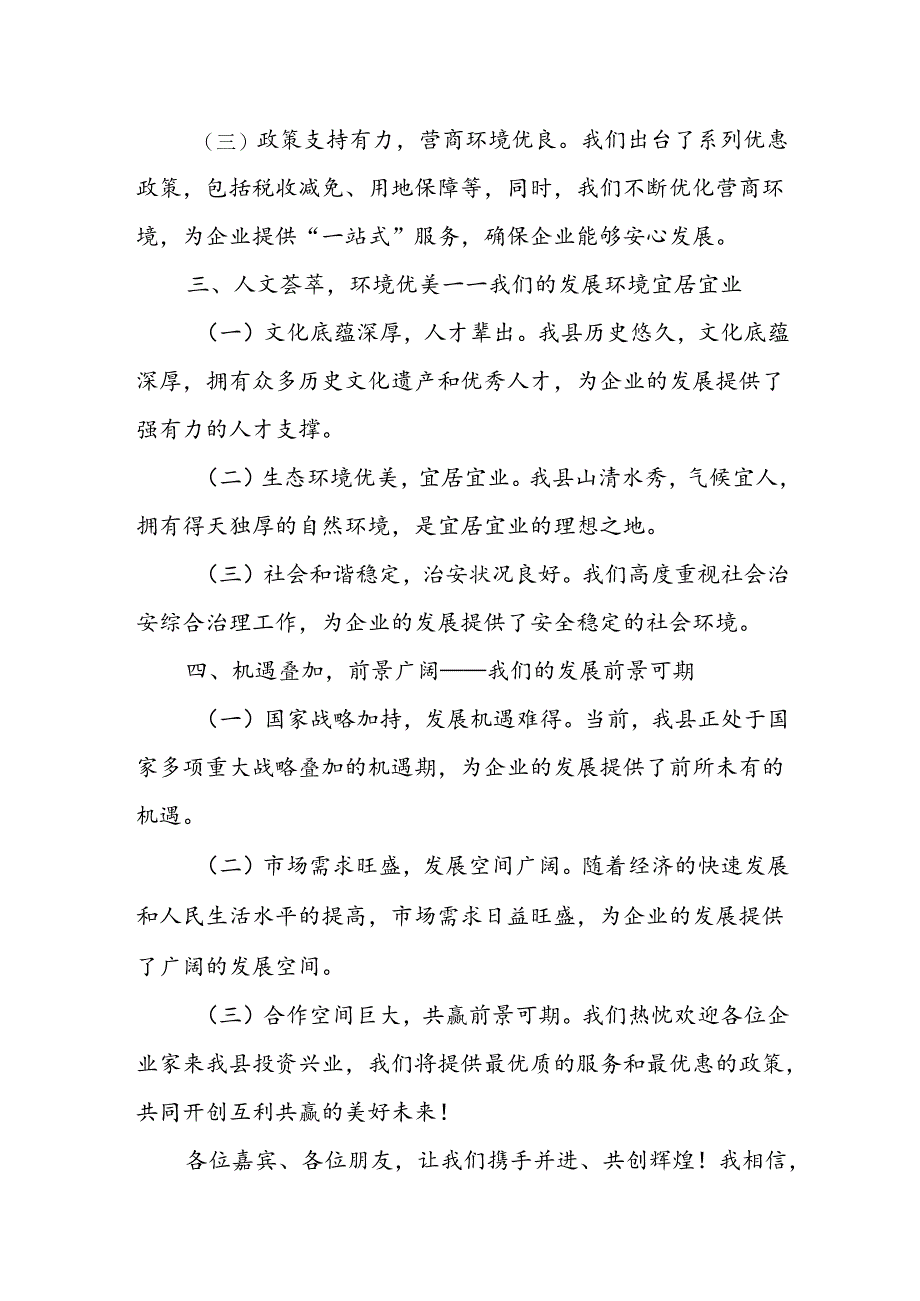 （三）政策支持有力，营商环境优良。我们出台了系列优惠
政策，包括税收减免、用地保障等，同时，我们不断优化营商环
境，为企业提供“一站式”服务，确保企业能够安心发展。
三、人文荟萃，环境优美一一我们的发展环境宜居宜业
（一）文化底蕴深厚，人才辈出。我县历史悠久，文化底蕴
深厚，拥有众多历史文化遗产和优秀人才，为企业的发展提供了
强有力的人才支撑。
（二）生态环境优美，宜居宜业。我县山清水秀，气候宜人，
拥有得天独厚的自然环境，是宜居宜业的理想之地。
（三）社会和谐稳定，治安状况良好。我们高度重视社会治
安综合治理工作，为企业的发展提供了安全稳定的社会环境。
四、机遇叠加，前景广阔——我们的发展前景可期
（一）国家战略加持，发展机遇难得。当前，我县正处于国
家多项重大战略叠加的机遇期，为企业的发展提供了前所未有的
机遇。
（二）市场需求旺盛，发展空间广阔。随着经济的快速发展
和人民生活水平的提高，市场需求日益旺盛，为企业的发展提供
了广阔的发展空间。
（三）合作空间巨大，共赢前景可期。我们热忱欢迎各位企
业家来我县投资兴业，我们将提供最优质的服务和最优惠的政策，
共同开创互利共赢的美好未来！
各位嘉宾、各位朋友，让我们携手并进、共创辉煌！我相信，